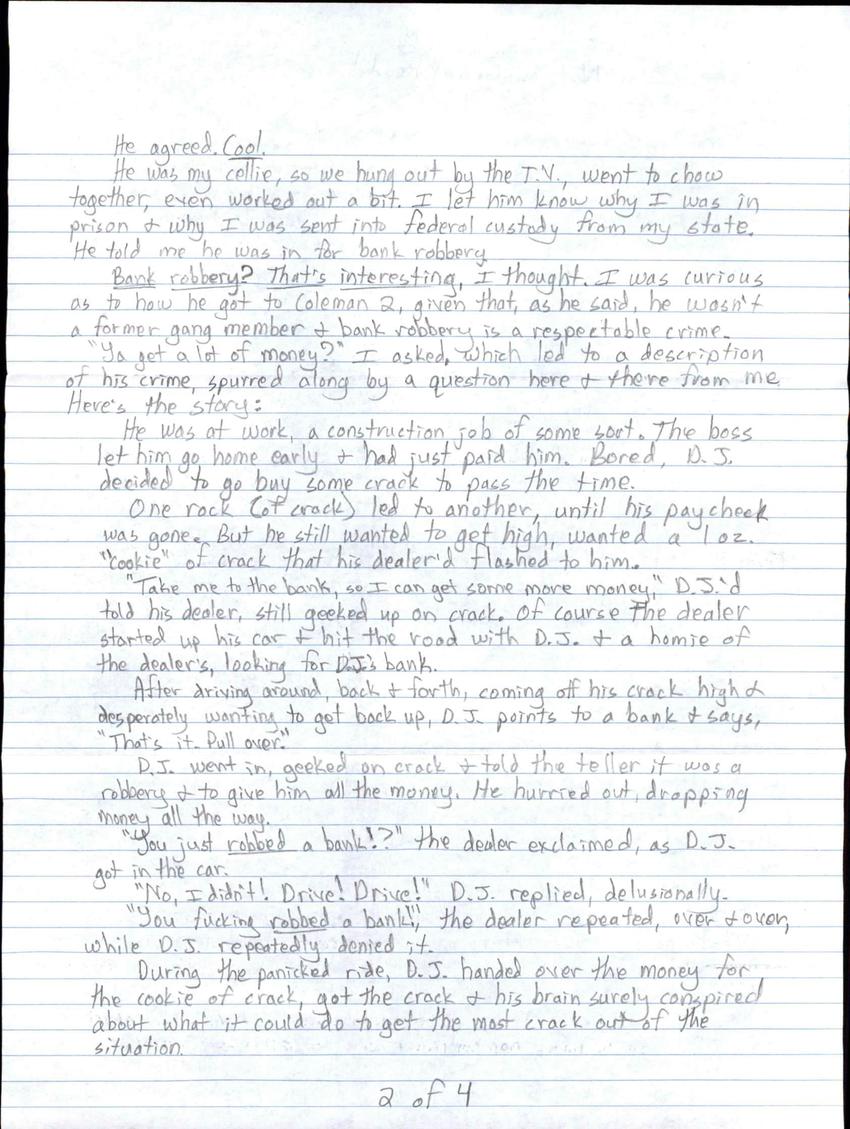 He agreed. Cool.
He was my cellie, so we hung out by the T.V., went to chow
together, even worked out a bit. I let him know why I was in
prison & why I was sent into federal custody from my state.
He told me he was in for bank robbery.
Bank robbery? That's interesting, I thought. I was curious
as to how he got to Coleman 2, given that, as he said, he wasn't
a former gang member & bank robbery is a respectable crime.
"Ya get a lot of money?" I asked, which led to a description
of his crime, spurred along by a question here & there from me.
Here's the story:
He was at work, a construction job of some sort. The boss
let him go home early & had just paid him. Bored, D.J.
decided to go buy some crack to pass the time.
One rock (of crack) led to another, until his paycheck
was gone. But he still wanted to get high, wanted a 1 oz.
"cookie" of crack that his dealer'd flashed to him.
"Take me to the bank, so I can get some more money," D.J.'d
told his dealer, still geeked up on crack. Of course the dealer
started up his car & hit the road with D.J. & a homie of
the dealer's, looking for D.J.'s bank.
After driving around, back & forth, coming off his crack high &
desperately wanting to get back up, D.J. points to a bank & says,
"That's it. Pull over."
D.J. went in, geeked on crack & told the teller it was a
robbery & to give him all the money. He hurried out, dropping
money all the way.
"You just robbed a bank!?" the dealer exclaimed, as D.J.
got in the car.
"No, I didn't! Drive! Drive!" D.J. replied, delusionally.
"You fucking robbed a bank!", the dealer repeated, over & over,
while D.J. repeatedly denied it.
During the panicked ride, D.J. handed over the money for
the cookie of crack, got the crack & his brain surely conspired
about what it could do to get the most crack out of the
situation.
2 of 4